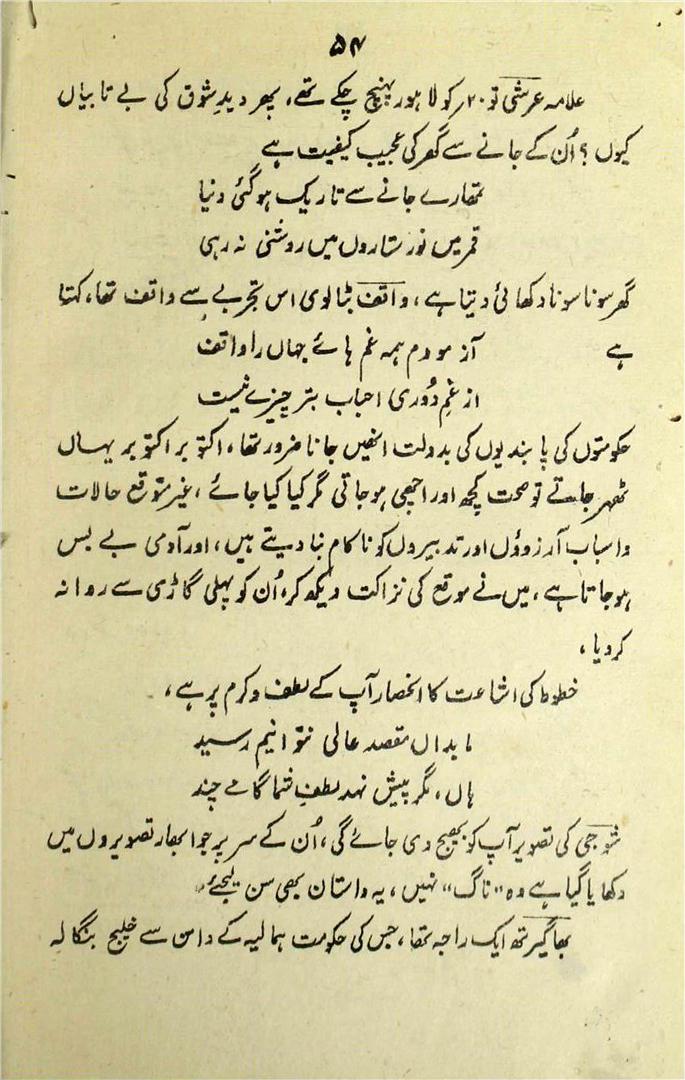 ۵۴
علامہ عرشی تو ۲۰؍ کو لاہور پہنچ چکے تھے، پھر دیدِ شوق کی بے تابیاں
کیوں ؟ اُن کے جانے سے گھر کی عجیب کیفیت ہے
تمھارے جانے سے تاریک ہو گئی دنیا
قمر میں نور ستاروں میں روشنی نہ رہی
گھر سونا سونا دکھائی دیتا ہے، واقف بٹالوی اس تجربے سے واقف تھا، کہتا
ہے آزمودم ہمہ غم ہائے جہاں را واقف
از غمِ دُوری احباب بتر چیزے نیست
حکومتوں کی پابندیوں کی بدولت انھیں جانا ضرور تھا، اکتوبر اکتوبر یہاں
ٹھہر جاتے تو صحت کچھ اور اچھی ہو جاتی مگر کیا کیا جائے، غیر متوقع حالات
واسباب آرزوؤں اور تدبیروں کو ناکام بنا دیتے ہیں، اور آدمی بے بس
ہو جاتا ہے، میں نے موقع کی نزاکت دیکھ کر، اُن کو پہلی گاڑی سے روانہ
کر دیا،
خطوط کی اشاعت کا انحصار آپ کے لطف و کرم پر ہے،
ما بداں مقصد عالی نتوانیم رسید
ہاں، مگر پیش نہد لطفِ شما گامے چند
شو جی کی تصویر آپ کو بھیج دی جائے گی، اُن کے سر پر جو ابھار تصویروں میں
دکھایا گیا ہے وہ "ناگ" نہیں، یہ داستان بھی سن لیجئے،
بھاگیرتھ ایک راجہ تھا، جس کی حکومت ہمالیہ کے دامن سے خلیج بنگالہ